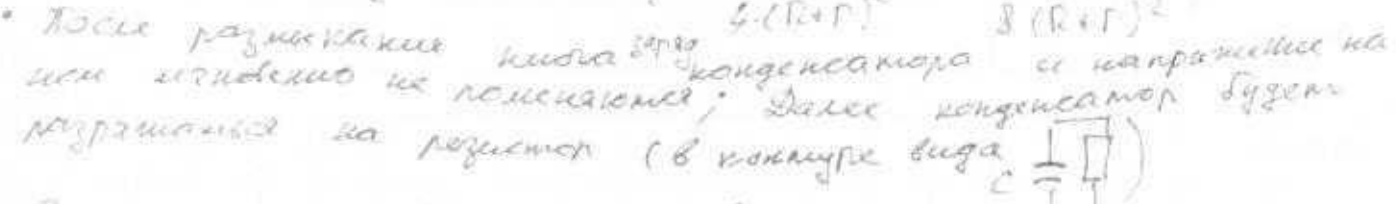 4·(R+r) 8(R+r)²
• После размыкания ключа заряд конденсатора и напряжение на
нем мгновенно не поменяются; Далее конденсатор будет
разряжаться на резистор (в контуре вида C )